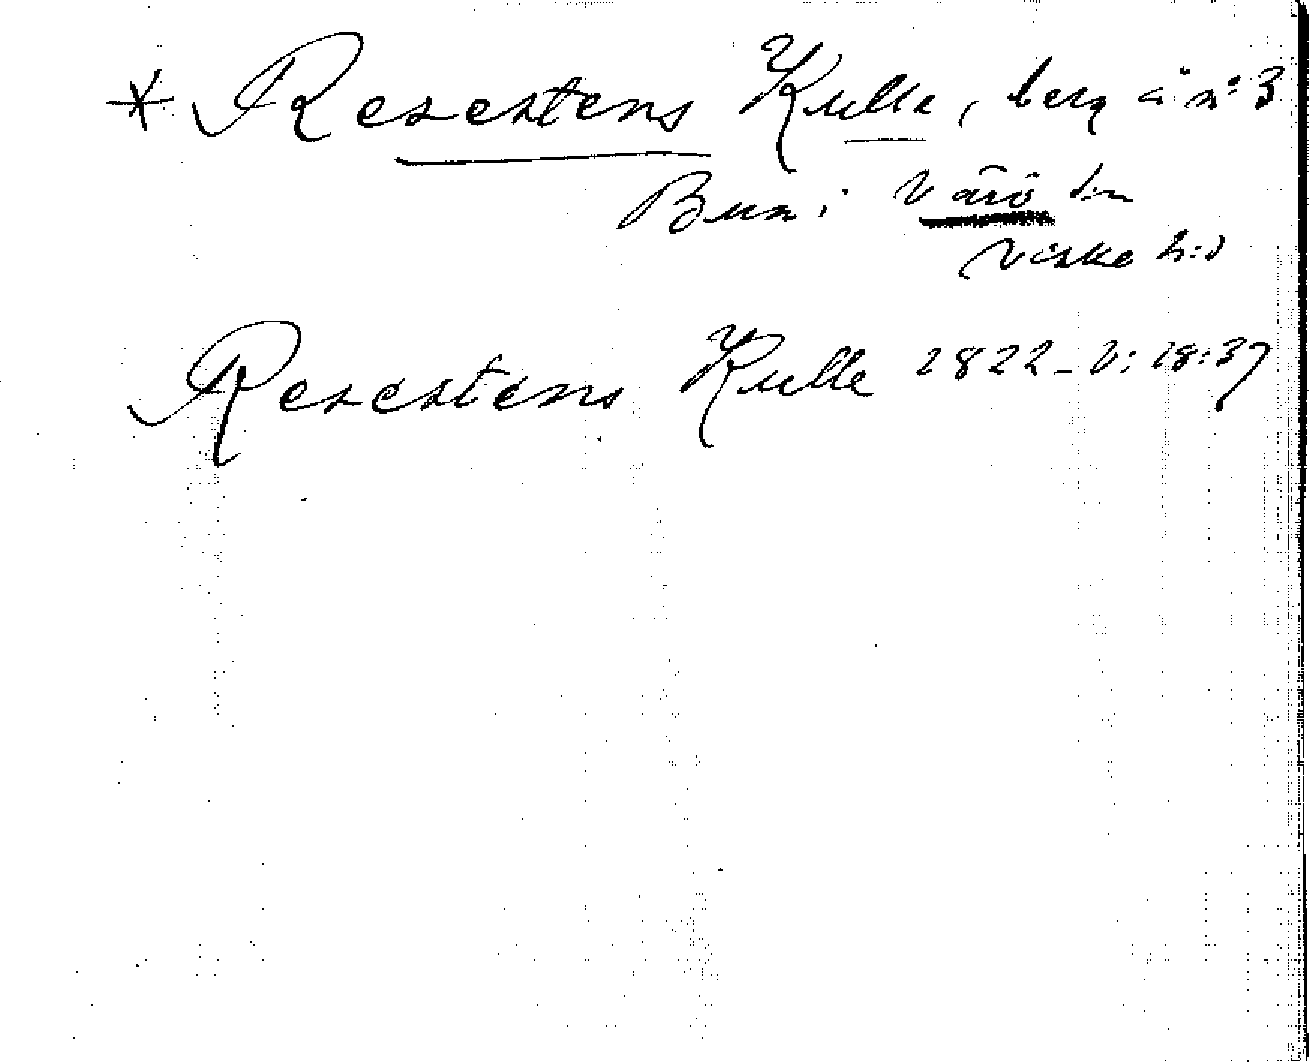 * Resestens Kulle, berg å nº 3
Bua i Värö sn
Viske hd
Resestens Kulle 1822 – V: 18:37